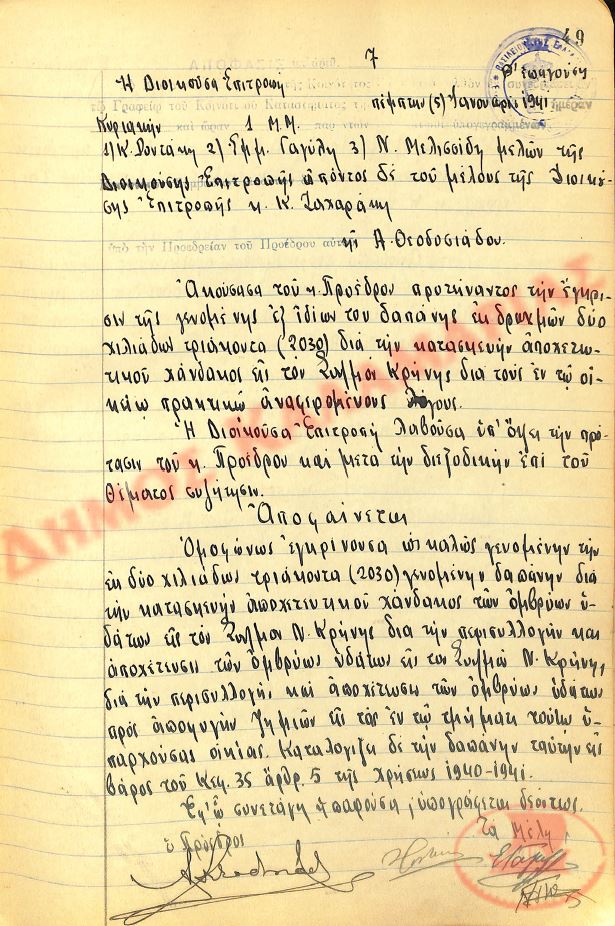 49
7
Ἡ Διοικοῦσα Ἐπιτροπὴ
πέμπτην (5) Ἰανουαρίου 1941
Κυριακὴν 1 Μ.Μ.
1) Κ. Ροντάκη 2) Ἐμμ. Γαγύλη 3) Ν. Μελισσίδη μελῶν τῆς
Διοικούσης Ἐπιτροπῆς ἀπόντος δὲ τοῦ μέλους τῆς Διοικού-
σης Ἐπιτροπῆς κ. Κ. Ζαχαράκη
ὑπὸ τὴν Προεδρείαν τοῦ Προέδρου αὐτῆς Α. Θεοδοσιάδου.
Ἀκούσασα τοῦ κ. Προέδρου προτείναντος τὴν ἔγκρι-
σιν τῆς γενομένης ἐξ ἰδίων του δαπάνης ἐκ δραχμῶν δύο
χιλιάδων τριάκοντα (2030) διὰ τὴν κατασκευὴν ἀποχετευ-
τικοῦ χάνδακος εἰς τὸν Συν/σμὸν Κρήνης διὰ τοὺς ἐν τῷ οἰ-
κείῳ πρακτικῷ ἀναφερομένους λόγους.
Ἡ Διοικοῦσα Ἐπιτροπὴ λαβοῦσα ὑπ' ὄψει τὴν πρό-
τασιν τοῦ κ. Προέδρου καὶ μετὰ τὴν διεξοδικὴν ἐπὶ τοῦ
θέματος συζήτησιν.
Ἀποφαίνεται
Ὁμοφώνως ἐγκρίνουσα ὡς καλῶς γενομένην τὴν
ἐκ δύο χιλιάδων τριάκοντα (2030) γενομένην δαπάνην διὰ
τὴν κατασκευὴν ἀποχετευτικοῦ χάνδακος τῶν ὀμβρίων ὑ-
δάτων εἰς τὸν Συν/σμὸν Ν. Κρήνης διὰ τὴν περισυλλογὴν καὶ
ἀποχέτευσιν τῶν ὀμβρίων ὑδάτων εἰς τὸν Συν/σμὸν Ν. Κρήνης,
διὰ τὴν περισυλλογὴν, καὶ ἀποχέτευσιν τῶν ὀμβρίων ὑδάτων
πρὸς ἀποφυγὴν ζημιῶν εἰς τὰς ἐν τῷ τμήματι τούτῳ ὑ-
παρχούσας οἰκίας. Καταλογίζει δὲ τὴν δαπάνην ταύτην εἰς
βάρος τοῦ Κεφ. 35 ἄρθρ. 5 τῆς χρήσεως 1940-1941.
Ἐφ' ᾧ συνετάγη ἡ παροῦσα, ὑπογράφεται δεόντως.
ὁ Πρόεδρος Τὰ Μέλη
ΔΗΜΟΣ ΚΑΛΑΜΑΡΙΑΣ